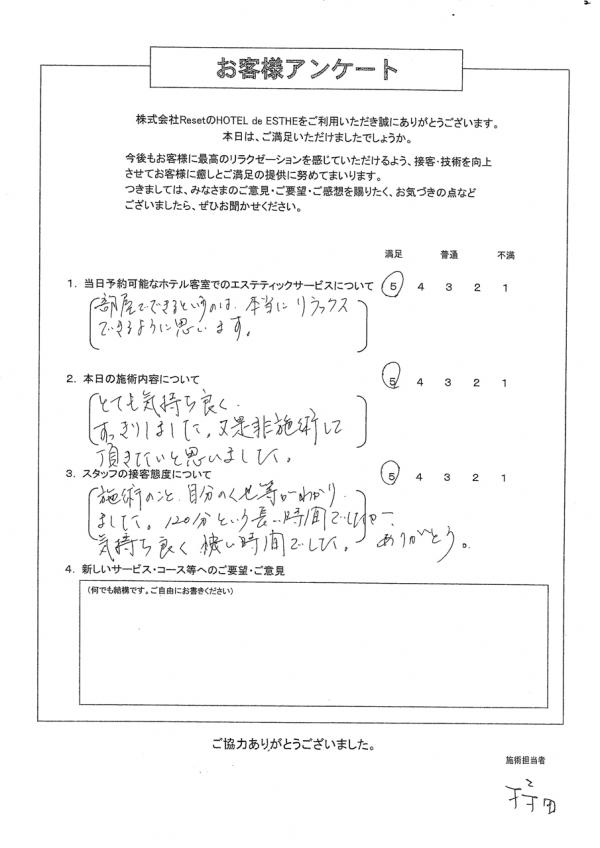 お客様アンケート
株式会社ResetのHOTEL de ESTHEをご利用いただき誠にありがとうございます。
本日は、ご満足いただけましたでしょうか。
今後もお客様に最高のリラクゼーションを感じていただけるよう、接客・技術を向上
させてお客様に癒しとご満足の提供に努めてまいります。
つきましては、みなさまのご意見・ご要望・ご感想を賜りたく、お気づきの点など
ございましたら、ぜひお聞かせください。
満足 普通 不満
1. 当日予約可能なホテル客室でのエステティックサービスについて 5 4 3 2 1
部屋でできるというのは、本当にリラックス
できるように思います。
2. 本日の施術内容について 5 4 3 2 1
とても気持ち良く、
すっきりしました。又是非施術して
頂きたいと思いました。
3. スタッフの接客態度について 5 4 3 2 1
施術のこと、自分のくせ等がわかり
ました。120分という長い時間でしたが
気持ち良く 時間でした。ありがとう。
4. 新しいサービス・コース等へのご要望・ご意見
(何でも結構です。ご自由にお書きください)
ご協力ありがとうございました。
施術担当者